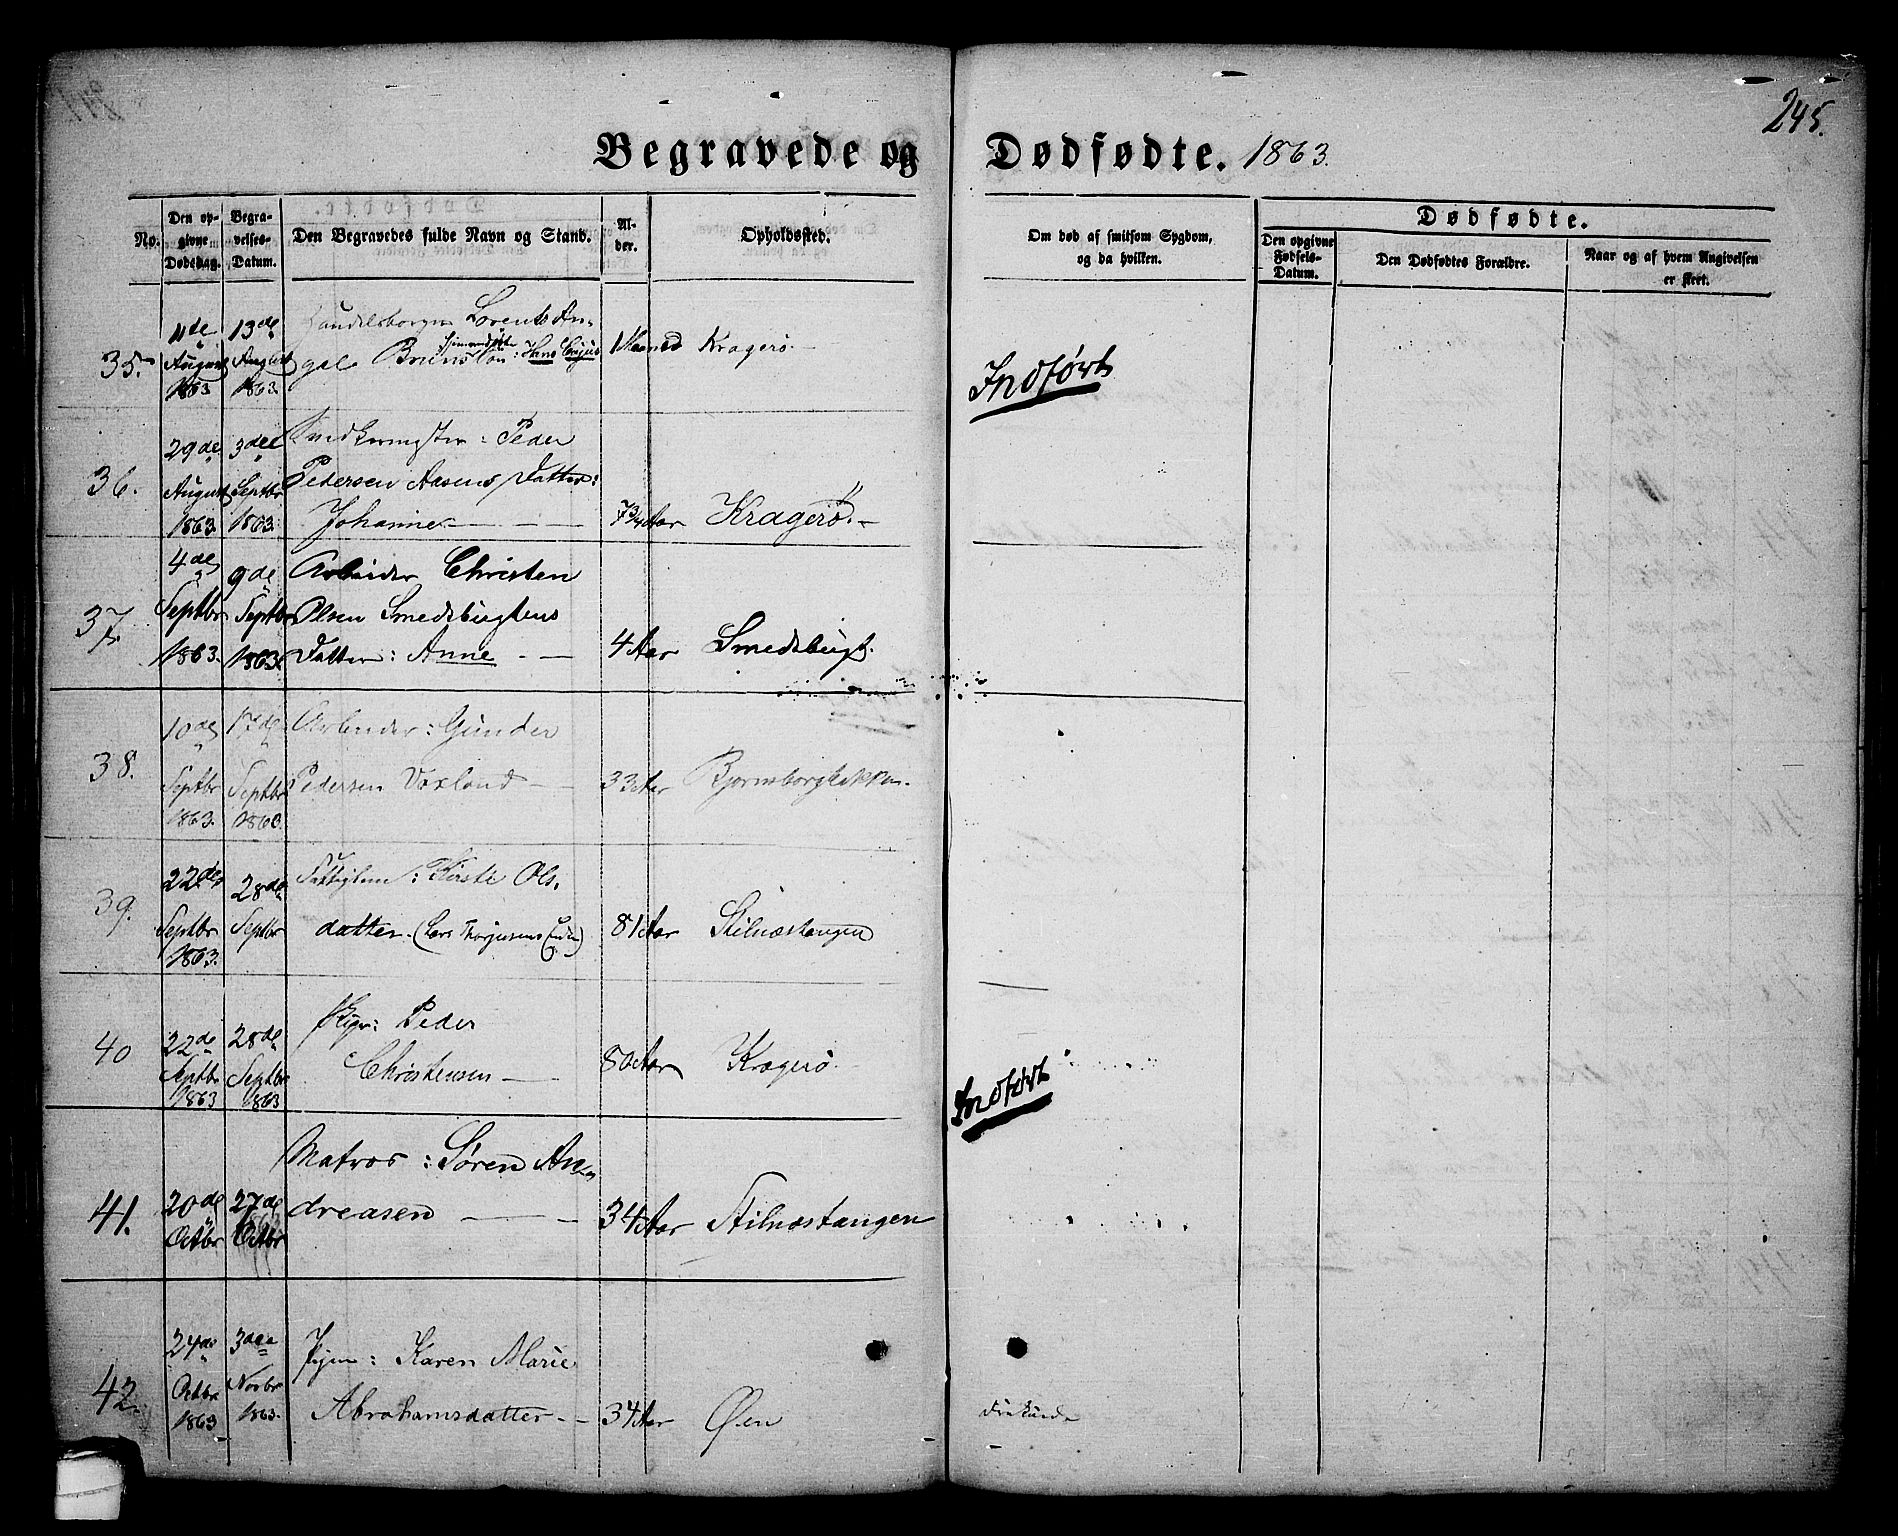 245.
Begravede og Dødfødte. 1863.
No.
Den op-
givne
Dødsdag.
Begra-
velses-
Datum.
Den Begravedes fulde Navn og Stand.
Al-
der.
Opholdssted.
Om død af smitsom Sygdom,
og da hvilken.
Dødfødte.
Den opgivne
Fødsels-
Datum.
Den Dødfødtes Forældre.
Naar og af hvem Angivelsen
er skeet.
35.
4de
August
1863
13de
August
1863.
Lorents An-
gel Bruns Søn: Hans
1 Maaned
Kragerø.
Indført
36.
29de
August
1863.
3die
Septbr
1863.
Peder
Pedersen Aasens Datter:
Johanne
7¾ Aar
Kragerø.
37.
4de
Septbr
1863.
9de
Septbr
1863.
Arbeider Christen
Olsen Smedsbugtens
Datter: Anne
4 Aar
Smedsbugt.
38.
10de
Septbr
1863.
17de
Septbr
1863.
Arbeider: Gunder
Pedersen Voxland
33 Aar
39.
22de
Septbr
1863.
28de
Septbr
Kirsti Ols-
datter. (Lars Thorjusens Enke)
81 Aar
Stilnæstangen
40
22de
Septbr
1863
28de
Septbr
1863
Peder
Christensen
80 Aar
Kragerø.
Indført
41.
20de
Octbr
27de
Octbr
Matros: Søren An-
dreasen
34 Aar
Stilnæstangen
42.
24de
Octbr
1863
3die
Novbr
1863.
Pigen: Karen Marie
Abrahamsdatter
34 Aar
Øen